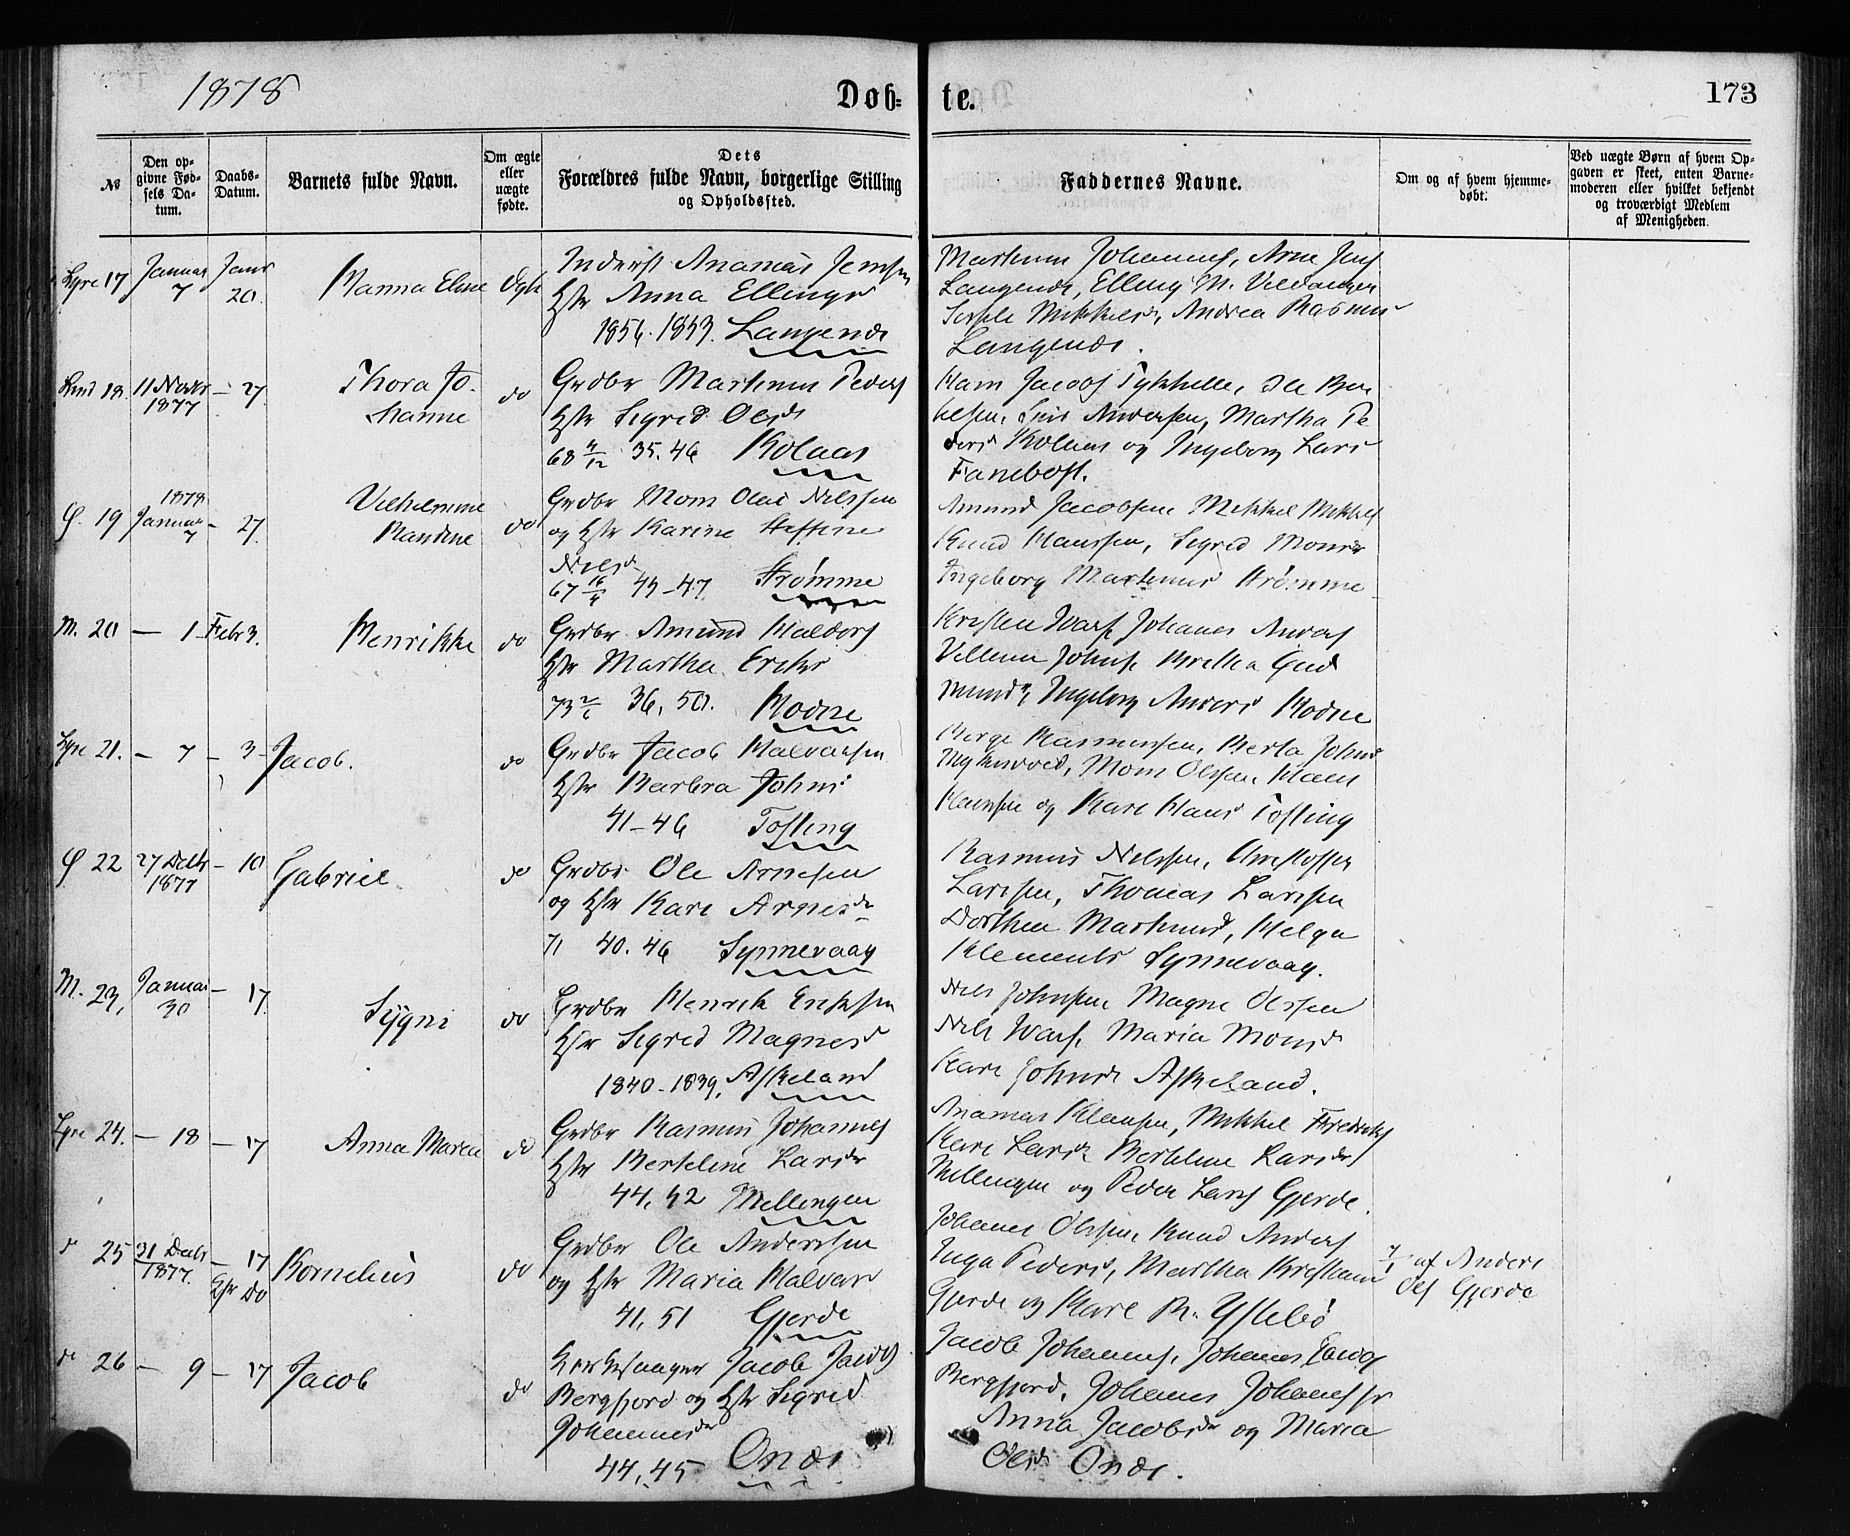 1878
Døb-
te.
173
№
Den op-
givne Fød-
sels Da-
tum.
Daabs-
Datum.
Barnets fulde Navn.
Om ægte
eller
uægte
fødte.
Dets
Forældres fulde Navn, borgerlige Stilling
og Opholdssted.
Faddernes Navne.
Om og af hvem hjemme-
døbt.
Ved uægte Børn af hvem Op-
gaven er skeet, enten Barne-
moderen eller hvilket bekjendt
og troværdigt Medlem
af Menigheden.
17 Januar 7 20. Hanna Eline
Inderst Ananias Jensen
Hstr Anna Ellings
1856. 1853. Langenæs
Johannes, Arne Jens
Langenæs, Elling M.
Mikkels, Andrea Rasmus
Langenæs.
Lind 18. 11 1877 - 27. Thora Jo-
hanne do
Grdbr Martinus Peders
Hstr Sigrid Olsd
68 4/12 35. 46 Kolaas
Hans Jacobs Ole
Andersen, Martha Pe
ders Kolaas og Ingeborg Lars
Fanebost.
G. 19 1878 Januar 7 - 27. Vilhelmine
Randine do
Grdbr Mons Olai Nilssen
og Hstr Karine Steffine
Nilsd
67 16/4 43-47. Strømme
Amund Jacobsen Mikkel Mikkels
Knud Hanssen, Sigrid Monsd
Ingeborg Martinus Strømme
M. 20 - 1 Febr 3. Henrikke do
Grdbr Amund Haldors
Hstr Martha Eriks
73 2/6 36, 50. Hodne
Johanes Anders
Villum Johns Britha Gud
mundsd, Ingeborg Anders Hodne
21. - 7 - 3 Jacob. do
Grdbr Jacob Halvorsen
Hstr Barbra Johns
41-46 Tofting
Børge Rasmussen, Berta Johnsd
Mons Olssen Hans
Hanssen og Kari Hansd Tofting
G 22 27 Decbr 1877 - 10 Gabriel. do
Grdbr Ole Arnesen
og Hstr Kari Arnesdr
71 40. 46 Synnevaag
Rasmus Nilssen, Christoffer
Larssen, Thomas Larssen
Dorthea Martinusd, Helga
Klements Synnevaag.
M. 23, Januar 30 - 17. Sygni do
Grdbr Henrik Eriksen
Hstr Sigrid Magnesd
1840-1839, Askeland
Nils Johnsen Magne Olssen
Nils Maria Monsd
Kari Johnsd Askeland.
24. - 18 - 17 Anna Maria do
Grdbr Rasmus Johannes
Hstr Berteline Larsdr
44, 42 Mellingen
Ananias Mikkel Fredriks
Kari Larsdr Berteline Larsdr
Mellingen og Peder Lars Gjerde.
25 31 Decbr 1877. - 17 Kornelius do
Grdbr Ole Anderssen
og Hstr Maria Halvors
41, 51 Gjerde
Johanes Olssen, Knud Anders
Inga Peders, Martha Kristians
Gjerde og Kari R. Ystebø
7/1 af Anders
Ols Gjerde
26 - 9 - 17 Jacob do
Kirkesanger Jacob Jacobs
Bergfjord og Hstr Sigrid
Johannesdr
44, 45 Onæs
Jacob Johannes, Johannes Jacobs
Bergfjord, Johannes Johannes jr
Anna Jacobsdr og Maria
Olsdr Onæs.